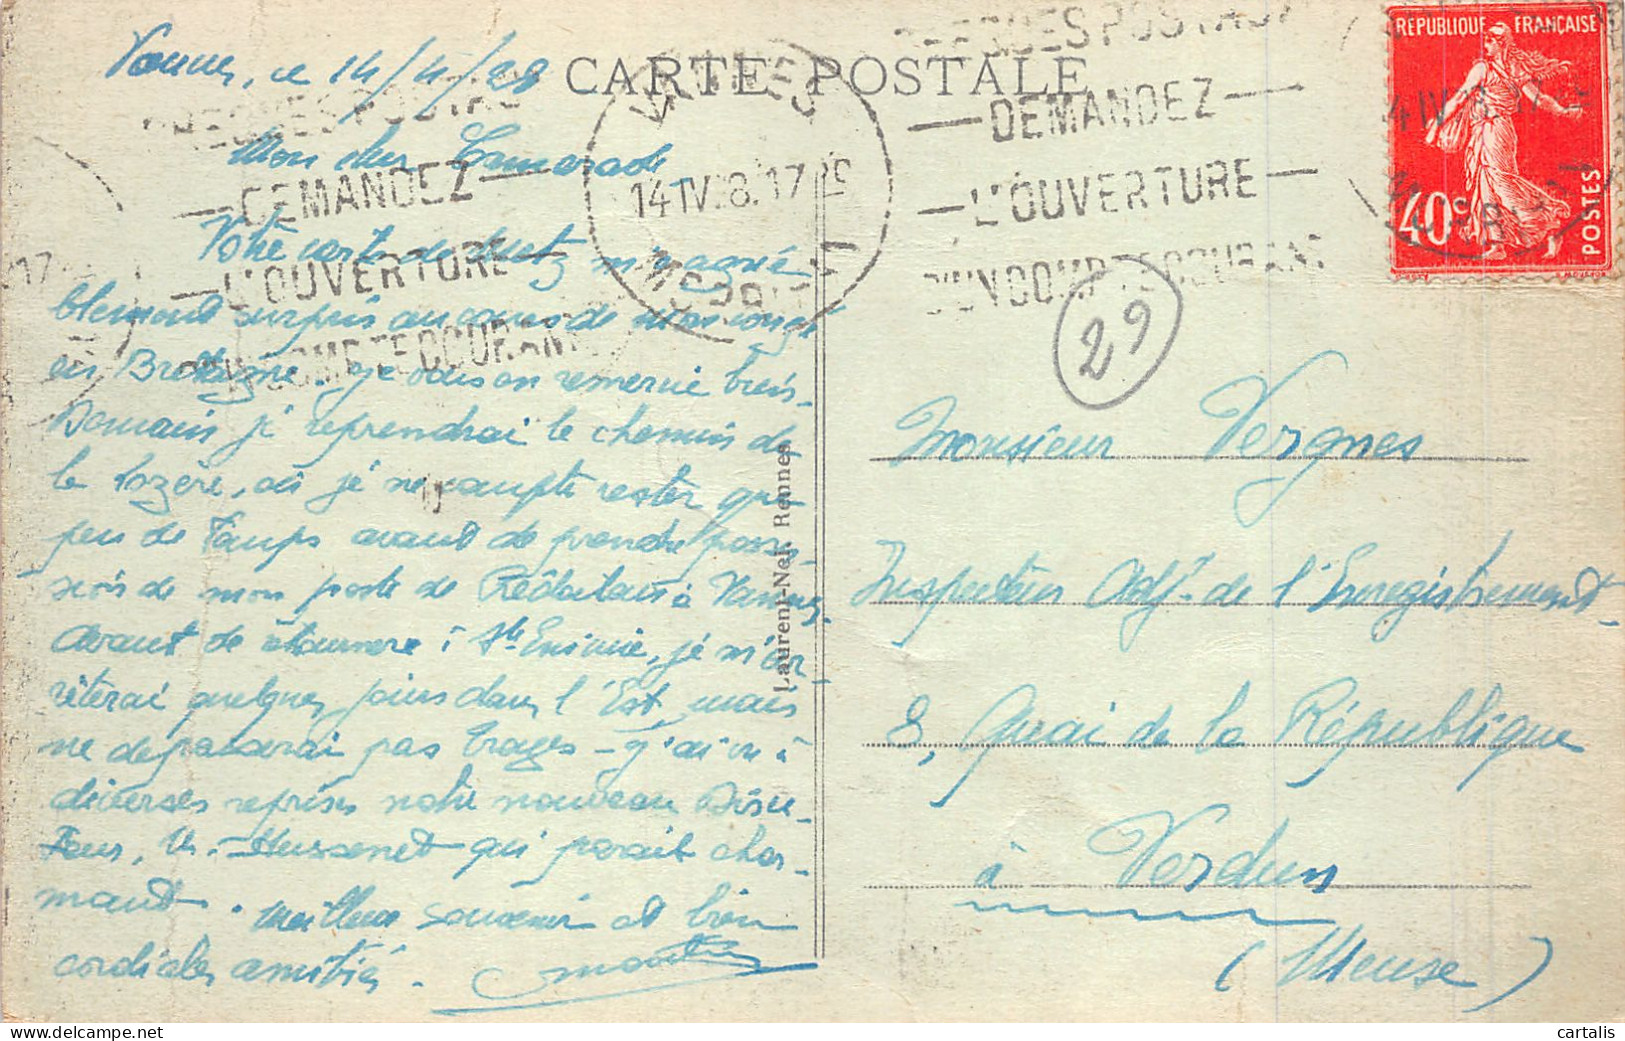 CARTE POSTALE
Vannes, ce 14/4/28
Mon cher Camarade
Votre carte de Metz m'a agréa
blement surpris au cours de mon congé
en Bretagne. Je vous en remercie bien.
Demain je reprendrai le chemin de
la Lozère, où je ne compte rester que
peu de temps avant de prendre posses
sion de mon poste de Rédacteur à Vannes.
Avant de retourner à Ste Enimie, je m'ar
rêterai quelques jours dans l'Est, mais
ne dépasserai pas - J'ai vu à
diverses reprises notre nouveau Direc-
teur, M. Hussenet qui parait char-
mant. Meilleur souvenir et bien
cordiales amitiés.
Laurent-Nel, Rennes
VANNES
14 IV 28. 17
MORBIHAN
CHEQUES POSTAUX
DEMANDEZ
L'OUVERTURE
D'UN COMPTE COURANT
CHEQUES POSTAUX
DEMANDEZ
L'OUVERTURE
D'UN COMPTE COURANT
29
REPUBLIQUE FRANÇAISE
40c
POSTES
Monsieur Vergnes
Inspecteur Adjt. de l'Enregistrement
8, Quai de la République
à Verdun
(Meuse)
cartalis